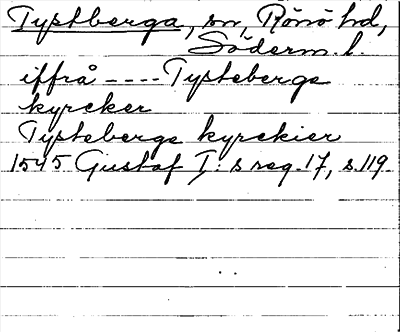 Tystberga, sn, Rönö hd,
Söderm. l.
iffrå ---- Tystebergs
kyrcker
Tystebergs kyrckier
1545 Gustaf I:s reg. 17, s. 119